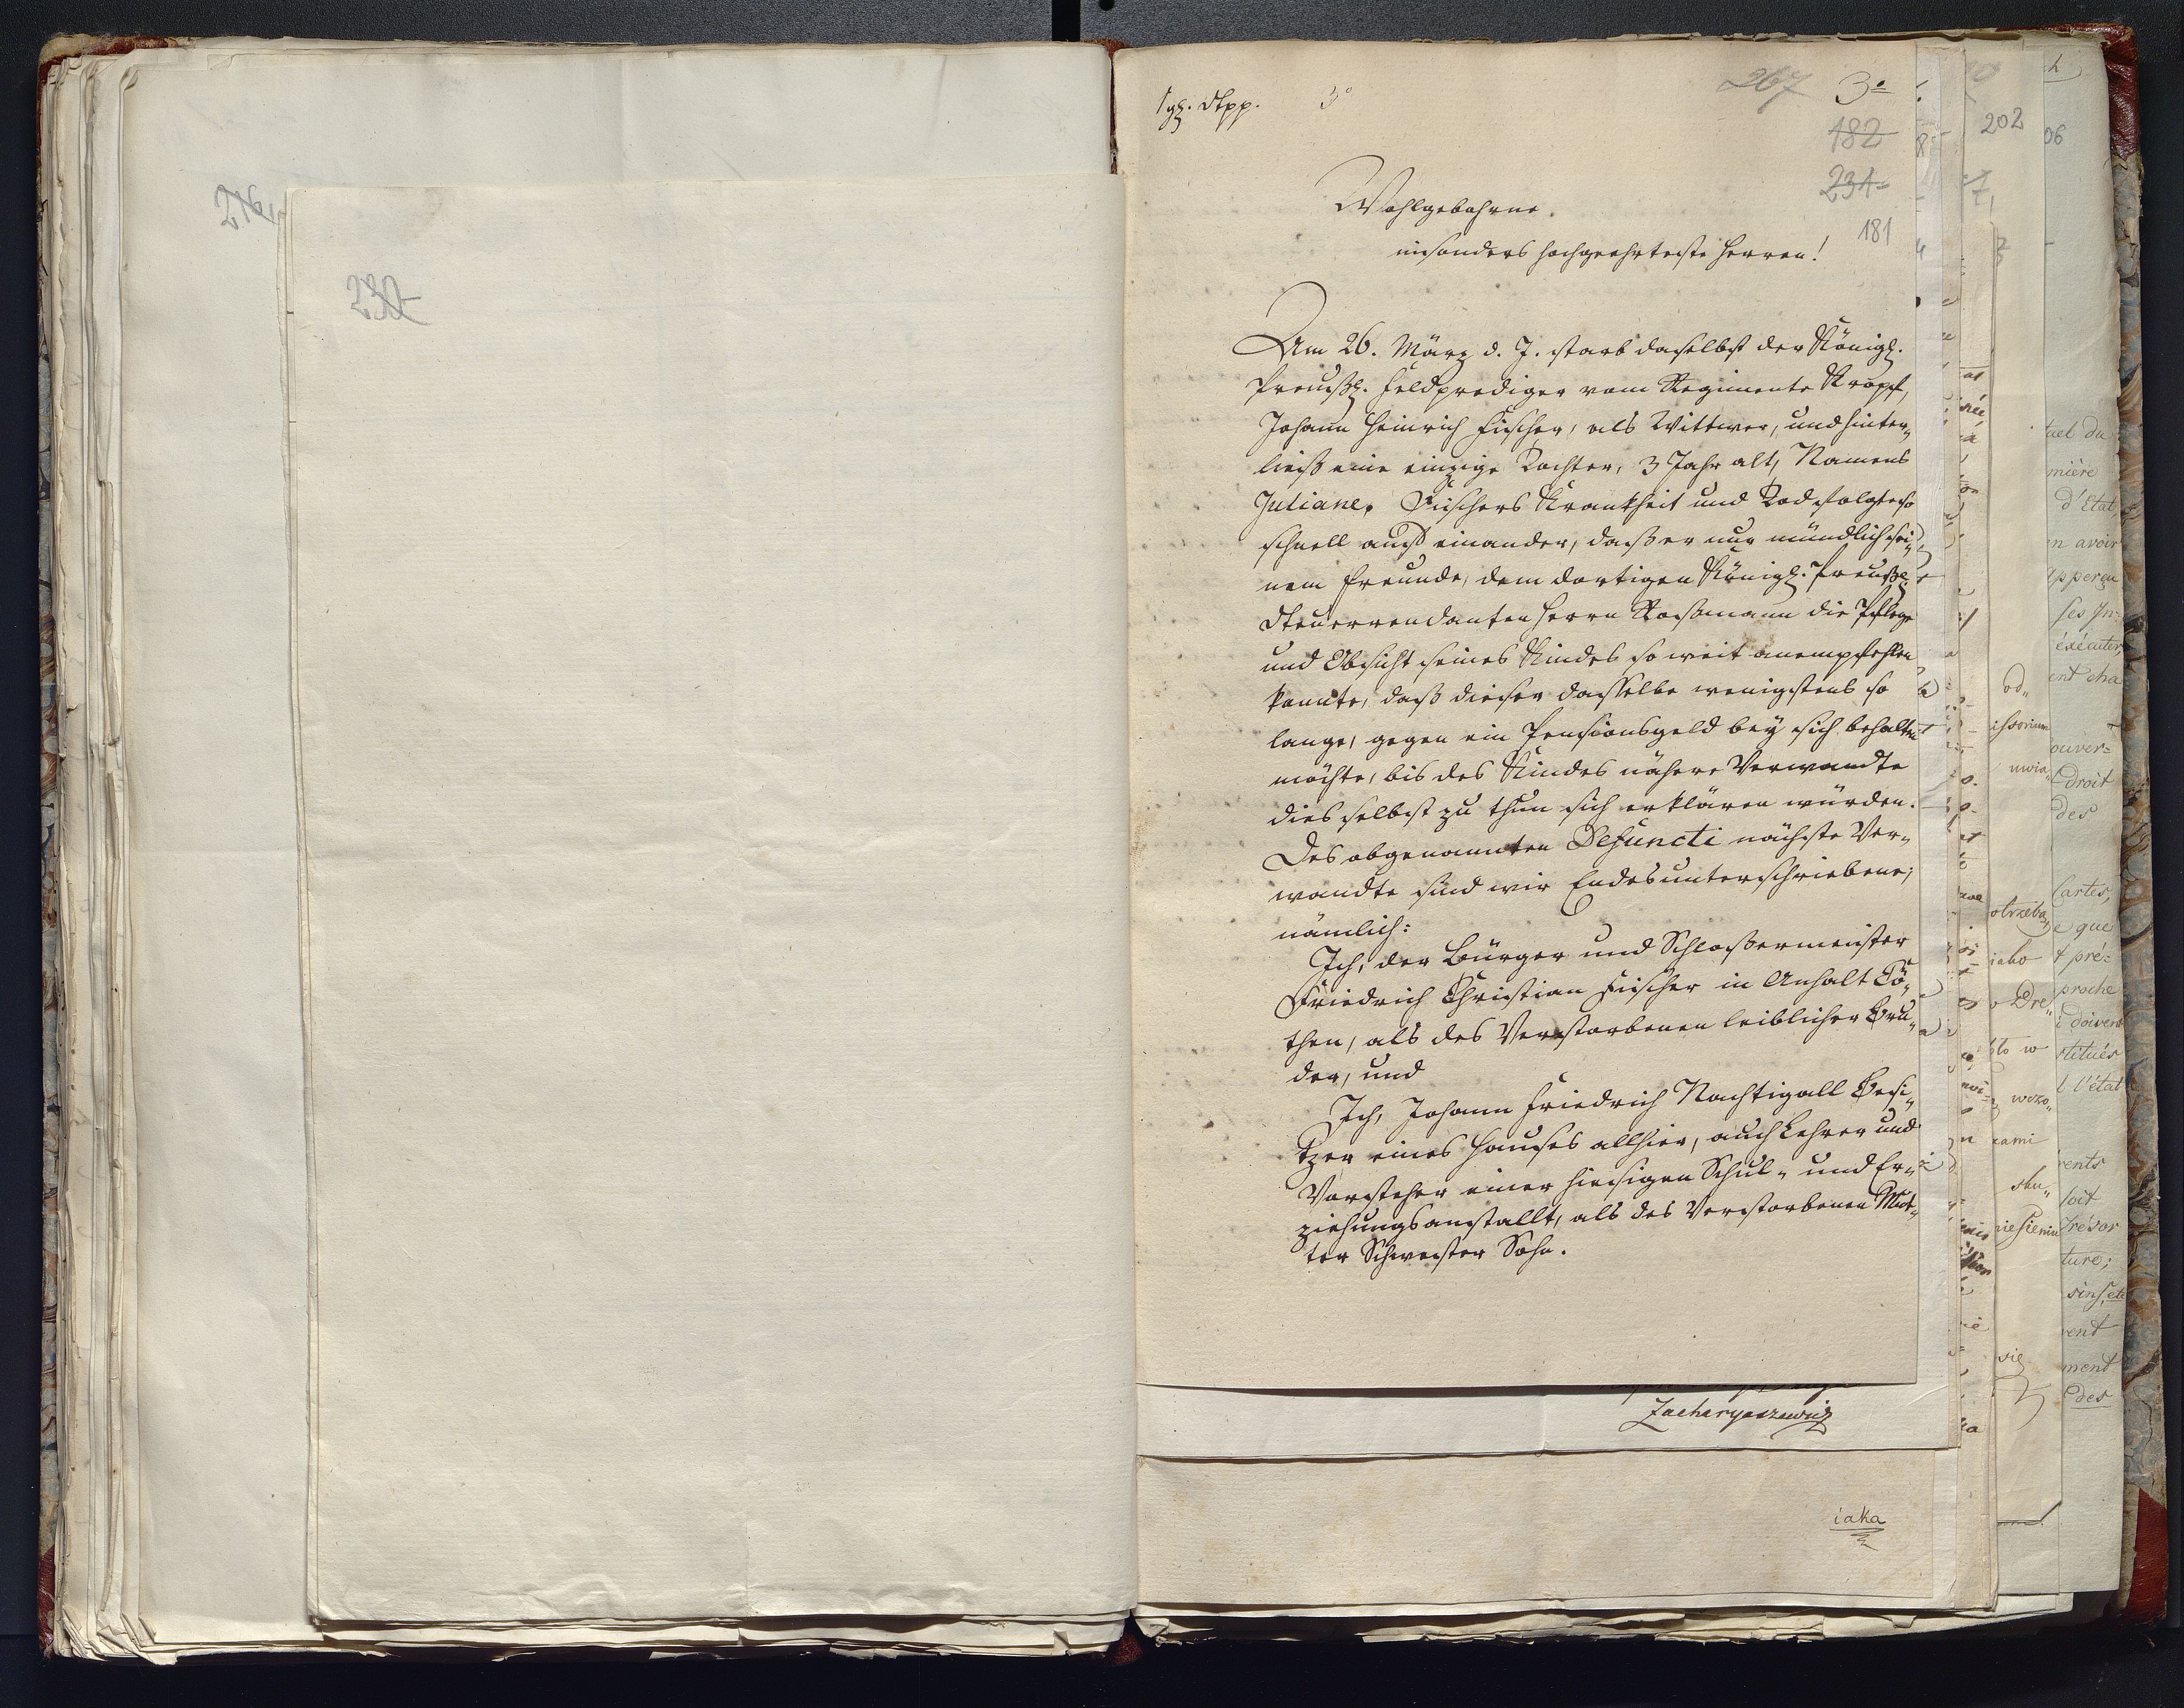 216
230
3°
267 3°
182
231
181
202
06
Wohlgebohrne.
insonders hochgeehrteste Herren!
Am 26. März d. J. starb daselbst der Königl.
Preußl. Feldprediger vom Regimente Kropff,
Johann Heinrich Fischer, als Wittwer, und hinter„
ließ eine einzige Tochter, 3 Jahr alt, Namens
Juliane. Fischers Krankheit und Tod folgte so
schnell auf einander, daß er nur mündlich sei„
nem Freunde, dem dortigen Königl. Preußl.
Steuerrendanten Herrn Roßmann die Pflege
und Absicht seines Kindes so weit anempfehlen
konnte, daß dieser dasselbe wenigstens so
lange, gegen ein Pensionsgeld bey sich behalten
möchte, bis des Kindes nähere Verwandte
dies selbst zu thun sich erklären würden.
Des obgenannten Defuncti nächste Ver„
wandte sind wir Endesunterschriebene;
nämlich:
Ich, der Bürger und Schloßermeister
Friedrich Christian Fischer in Anhalt Cö„
then, als des Verstorbenen leiblicher Bru„
der, und
Ich, Johann Friedrich Nachtigall Besi„
tzer eines Hauses allhier, auch Lehrer und
Vorsteher einer hiesigen Schul„ und Er„
ziehungsanstallt, als des Verstorbenen Mut„
ter Schwester Sohn.
Zacharyaszewicz
iaka
tuel du
mière
d'Etat
n avoir
apperçu
ses Yn=
éxécuter,
ent cha
ouver=
droit
des
Cartes,
e que
t pré=
proche
i doivent
stitués
l l'état
rents
soit
Trésor
ture;
sins, etc
vent
ment
des